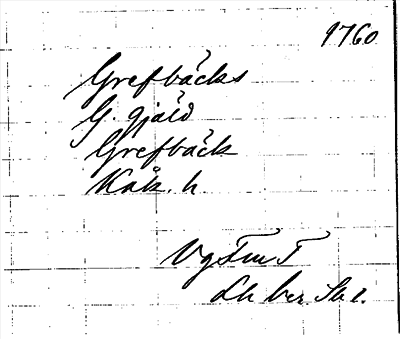 1760
Grefbäcks
G. gjäld
Grefbäck
Kåk. h
Vg Fm T
Lh ber. Sk 2.